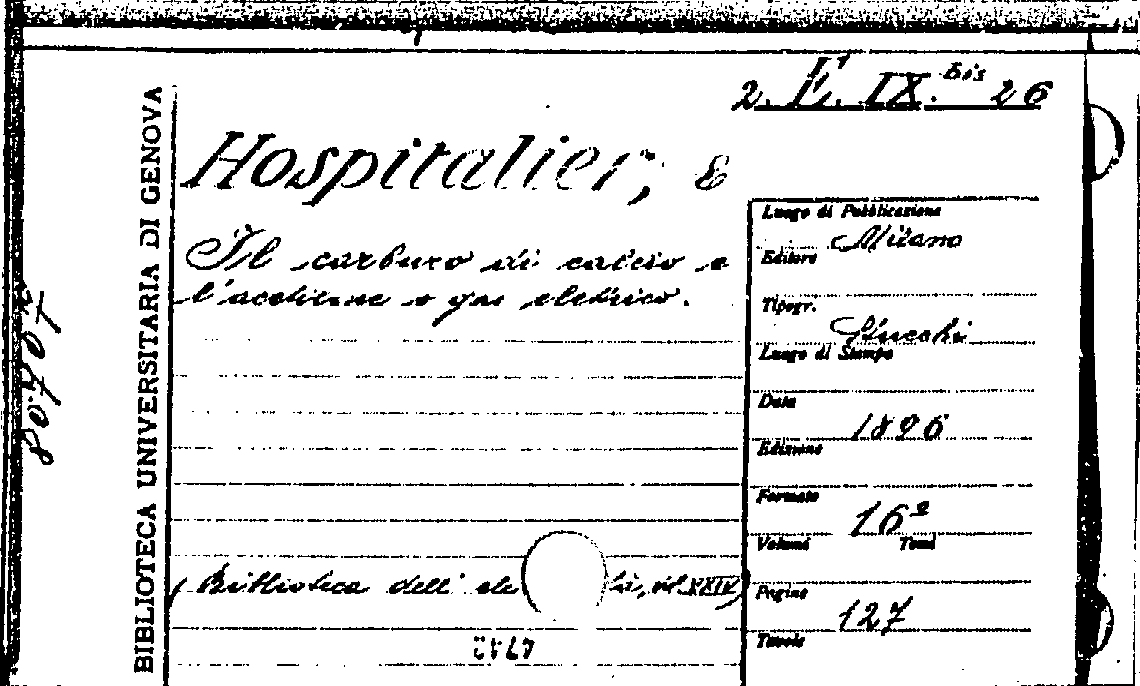 2. E. IX. bis 26
Hospitalier, E
Il carburo di calcio e
l'acetilene o gas elettrico.
(Biblioteca dell' ele tà, vol. XXIX)
BIBLIOTECA UNIVERSITARIA DI GENOVA
Luogo di Pubblicazione
Milano
Editore
Tipogr.
Luogo di Stampa
Data
1896
Edizione
Formato
16°
Volumi Tomi
Pagine
127
Tavole